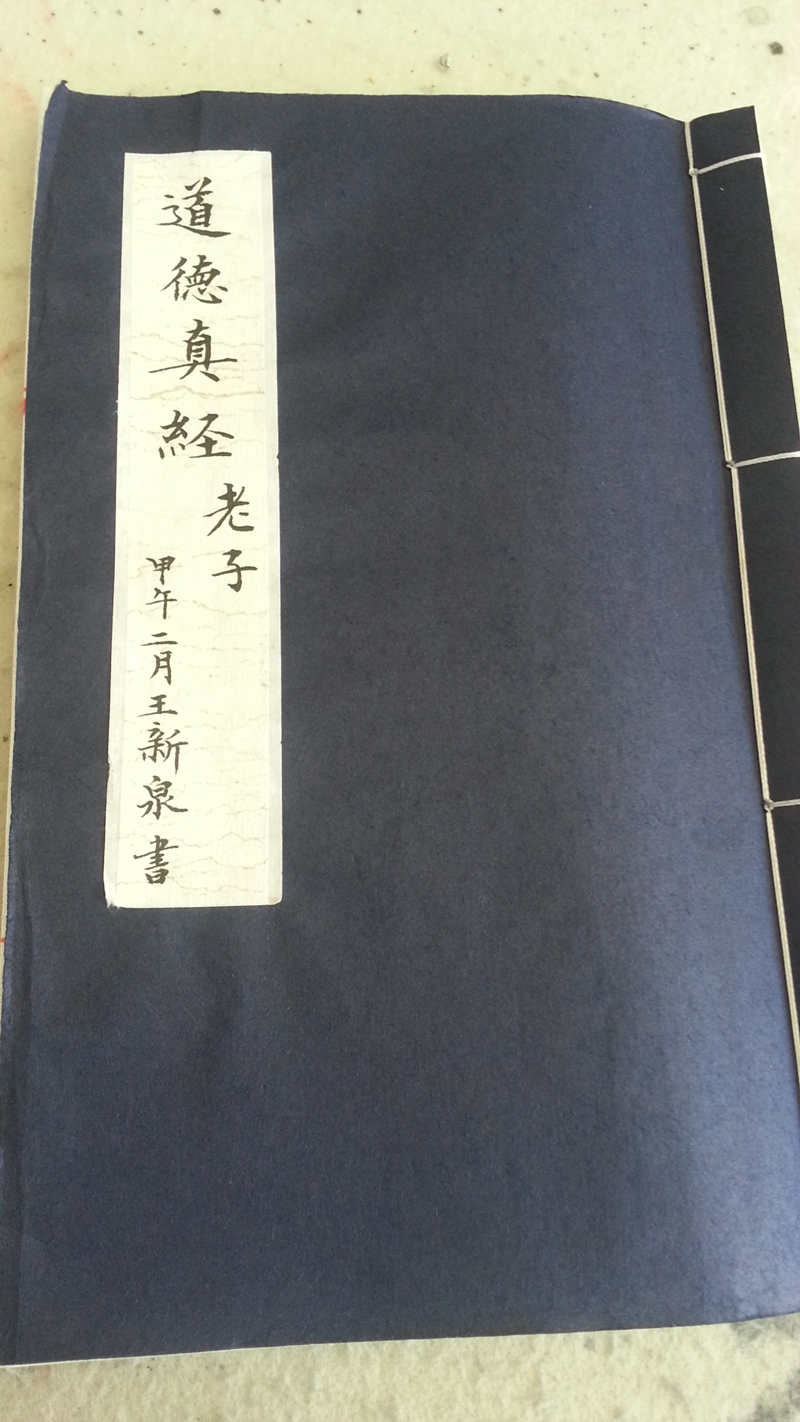 道德真経
老子
甲午二月王新泉書